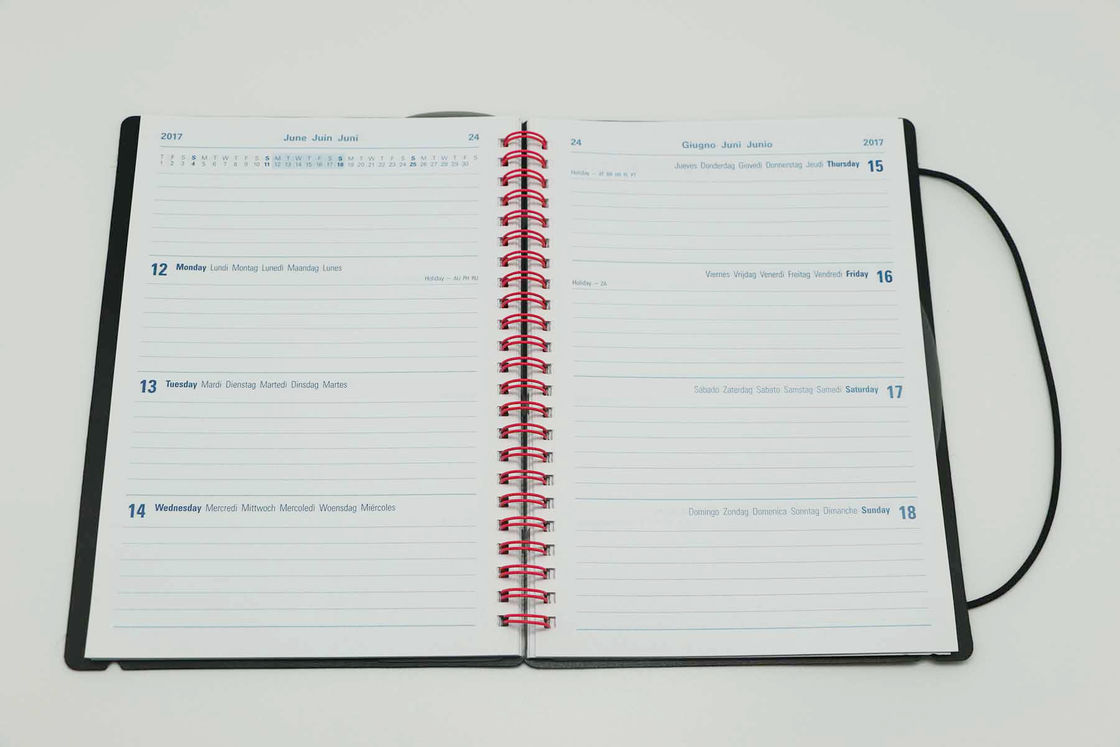 2017 June Juin Juni 24
T F S S M T W T F S S M T W T F S S M T W T F S S M T W T F S
1 2 3 4 5 6 7 8 9 10 11 12 13 14 15 16 17 18 19 20 21 22 23 24 25 26 27 28 29 30
12 Monday Lundi Montag Lunedì Maandag Lunes
Holiday – AU PH RU
13 Tuesday Mardi Dienstag Martedì Dinsdag Martes
14 Wednesday Mercredi Mittwoch Mercoledì Woensdag Miércoles
24 Giugno Juni Junio 2017
Jueves Donderdag Giovedì Donnerstag Jeudi Thursday 15
Holiday – PL PT
Viernes Vrijdag Venerdì Freitag Vendredi Friday 16
Holiday – ZA
Sábado Zaterdag Sabato Samstag Samedi Saturday 17
Domingo Zondag Domenica Sonntag Dimanche Sunday 18